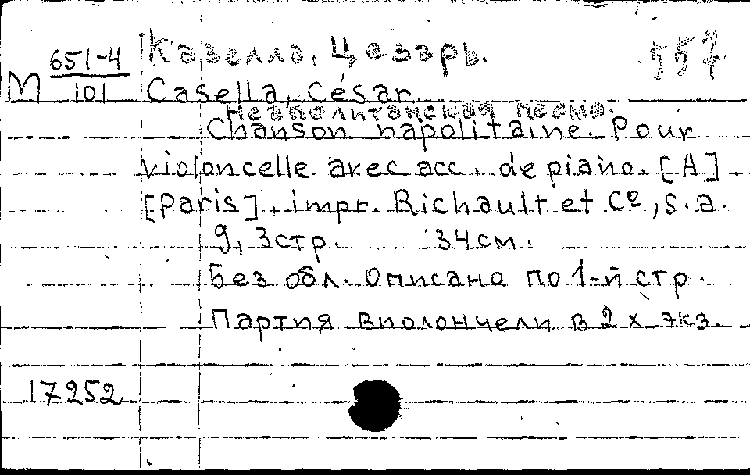 М 651-4/101
Казелла, Цезарь. 557
Casella, César.
Неаполитанская песня.
Chanson napolitaine. Pour
violoncelle avec acc. de piano. [A]
[Paris], impr. Richault et Cᵉ, s.a.
9, 3 стр. 34 см.
Без обл. Описано по 1-й стр.
Партия виолончели в 2 х экз.
17252